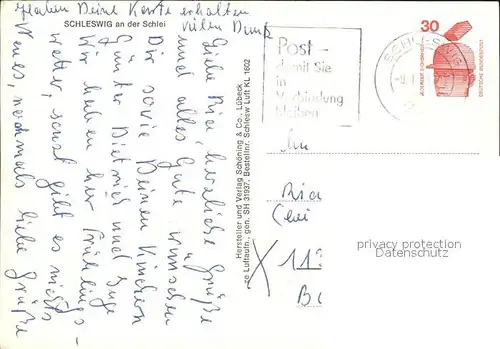 Haben Deine Karte erhalten
vielen Dank
SCHLESWIG an der Schlei
Liebe Ria, herzliche Grüße
und alles Gute wünschen
Dir sowie Deinen Kindern
Günter Dietrich und Inge
Wir haben hier Frühlings-
wetter, sonst gibt es nichts
Neues, nochmals liebe Grüße
Hersteller und Verlag Schöning & Co., Lübeck
Luftaufn., gen. SH 31937, Bestellnr. Schlesw Luft KL 1602
Post -
damit Sie
in
Verbindung
bleiben
SCHLESWIG
30
DEUTSCHE BUNDESPOST
JEDERZEIT SICHERHEIT
An
Ria
privacy protection
Datenschutz